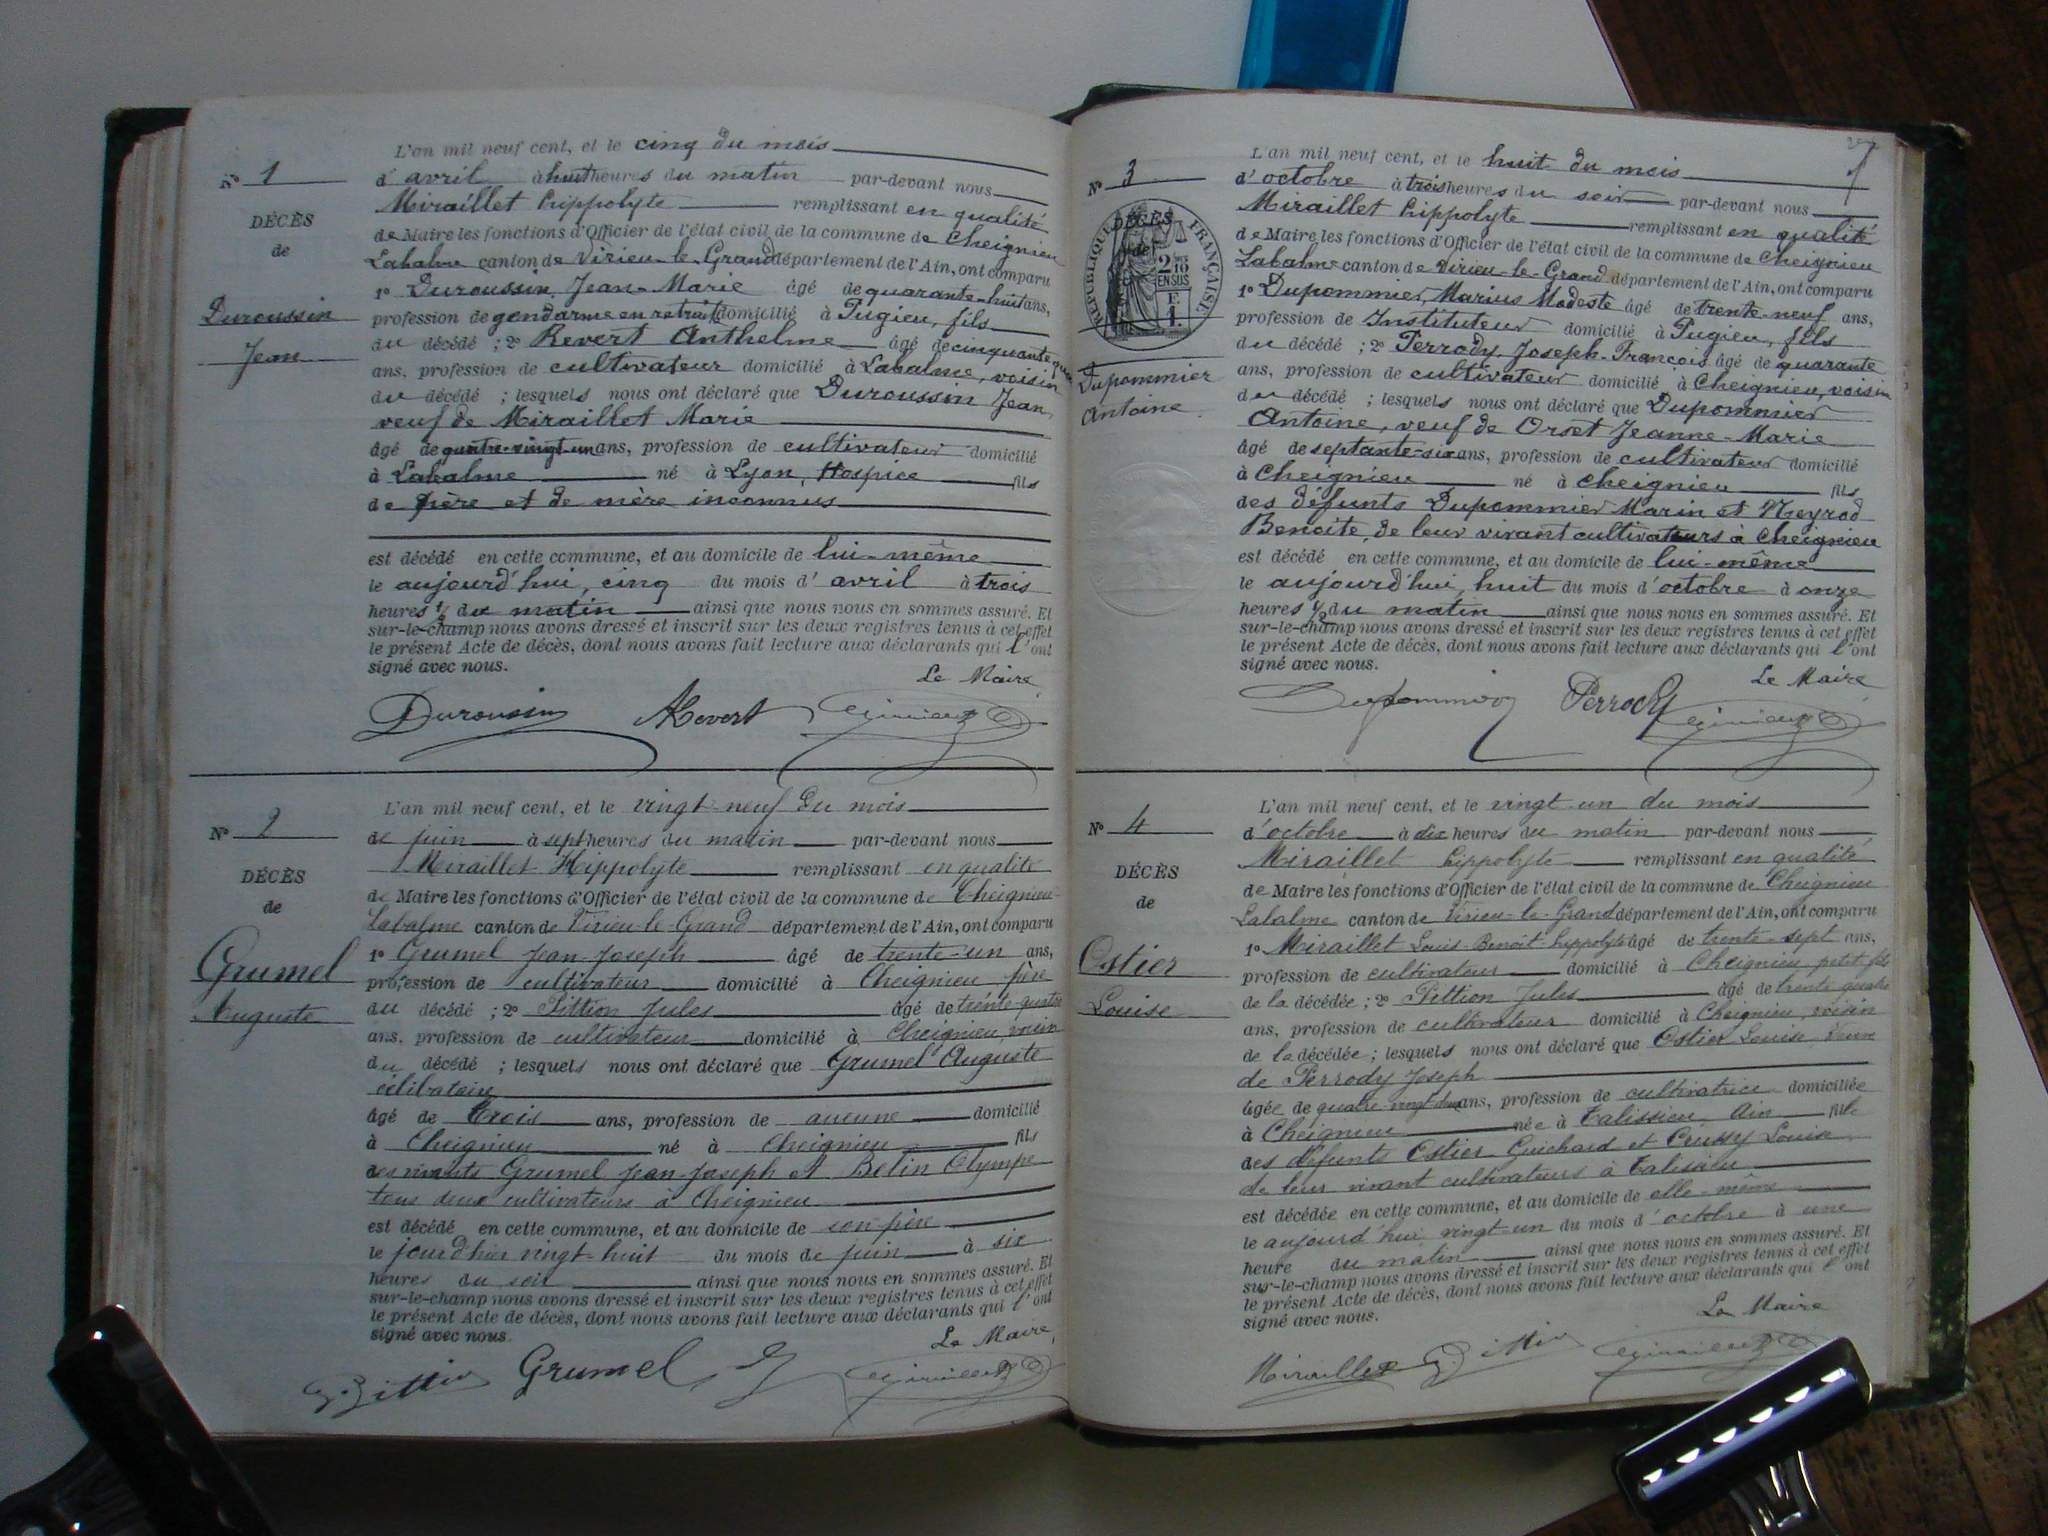 N° 1
DÉCÈS
de
Duroussin
Jean
L'an mil neuf cent, et le cinq du mois
d'avril à huit heures du matin par-devant nous
Miraillet hippolyte remplissant en qualité
de Maire les fonctions d'Officier de l'état civil de la commune de Cheignieu
Labalme canton de Virieu-le-Grand département de l'Ain, ont comparu
1° Duroussin, Jean-Marie âgé de quarante-huit ans,
profession de gendarme en retraite domicilié à Pugieu, fils
du décédé ; 2° Revert Anthelme âgé de cinquante
ans, profession de cultivateur domicilié à Labalme, voisin
du décédé ; lesquels nous ont déclaré que Duroussin Jean,
veuf de Miraillet Marie
âgé de quatre-vingt-un ans, profession de cultivateur domicilié
à Labalme né à Lyon, Hospice fils
de père et de mère inconnus
est décédé en cette commune, et au domicile de lui-même
le aujourd'hui, cinq du mois d'avril à trois
heures 1/2 du matin ainsi que nous nous en sommes assuré. Et
sur-le-champ nous avons dressé et inscrit sur les deux registres tenus à cet effet
le présent Acte de décès, dont nous avons fait lecture aux déclarants qui l'ont
signé avec nous.
Le Maire,
Duroussin Revert
N° 2
DÉCÈS
de
Grumel
Auguste
L'an mil neuf cent, et le vingt-neuf du mois
de juin à sept heures du matin par-devant nous
Miraillet Hippolyte remplissant en qualité
de Maire les fonctions d'Officier de l'état civil de la commune de Cheignieu-
Labalme canton de Virieu-le-Grand département de l'Ain, ont comparu
1° Grumel Jean-Joseph âgé de trente-un ans,
profession de cultivateur domicilié à Cheignieu, père
du décédé ; 2° Pittion Jules âgé de trente-quatre
ans, profession de cultivateur domicilié à Cheignieu, voisin
du décédé ; lesquels nous ont déclaré que Grumel Auguste
célibataire
âgé de trois ans, profession de aucune domicilié
à Cheignieu né à Cheignieu fils
des vivants Grumel Jean-Joseph et Belin Olympe
tous deux cultivateurs à Cheignieu
est décédé en cette commune, et au domicile de son père
le jourd'hier vingt-huit du mois de juin à six
heures du soir ainsi que nous nous en sommes assuré. Et
sur-le-champ nous avons dressé et inscrit sur les deux registres tenus à cet effet
le présent Acte de décès, dont nous avons fait lecture aux déclarants qui l'ont
signé avec nous.
Le Maire,
J. Pittion Grumel
N° 3
DÉCÈS
de
RÉPUBLIQUE FRANÇAISE
2/10 EN SUS
Dupommier
Antoine
L'an mil neuf cent, et le huit du mois
d'octobre à trois heures du soir par-devant nous
Miraillet hippolyte remplissant en qualité
de Maire les fonctions d'Officier de l'état civil de la commune de Cheignieu
Labalme canton de Virieu-le-Grand département de l'Ain, ont comparu
1° Dupommier, Marius Modeste âgé de trente-neuf ans,
profession de Instituteur domicilié à Pugieu, fils
du décédé ; 2° Perrody Joseph-François âgé de quarante
ans, profession de cultivateur domicilié à Cheignieu, voisin
du décédé ; lesquels nous ont déclaré que Dupommier
Antoine, veuf de Orset Jeanne-Marie
âgé de septante-six ans, profession de cultivateur domicilié
à Cheignieu né à Cheignieu fils
des défunts Dupommier Marin et Neyrod
Benoîte, de leur vivant cultivateurs à Cheignieu
est décédé en cette commune, et au domicile de lui-même
le aujourd'hui, huit du mois d'octobre à onze
heures 1/2 du matin ainsi que nous nous en sommes assuré. Et
sur-le-champ nous avons dressé et inscrit sur les deux registres tenus à cet effet
le présent Acte de décès, dont nous avons fait lecture aux déclarants qui l'ont
signé avec nous.
Le Maire
Dupommier Perrody
N° 4
DÉCÈS
de
Ostier
Louise
L'an mil neuf cent, et le vingt-un du mois
d'octobre à dix heures du matin par-devant nous
Miraillet hippolyte remplissant en qualité
de Maire les fonctions d'Officier de l'état civil de la commune de Cheignieu
Labalme canton de Virieu-le-Grand département de l'Ain, ont comparu
1° Miraillet Louis-Benoit-hippolyte âgé de trente-sept ans,
profession de cultivateur domicilié à Cheignieu petit-fils
de la décédée ; 2° Pittion Jules âgé de trente-quatre
ans, profession de cultivateur domicilié à Cheignieu, voisin
de la décédée ; lesquels nous ont déclaré que Ostier Louise veuve
de Perrody Joseph
âgée de quatre-vingt-deux ans, profession de cultivatrice domiciliée
à Cheignieu née à Talissieu Ain fille
des défunts Ostier Guichard et Louise
de leur vivant cultivateurs à Talissieu
est décédée en cette commune, et au domicile de elle-même
le aujourd'hui vingt-un du mois d'octobre à une
heure du matin ainsi que nous nous en sommes assuré. Et
sur-le-champ nous avons dressé et inscrit sur les deux registres tenus à cet effet
le présent Acte de décès, dont nous avons fait lecture aux déclarants qui l'ont
signé avec nous.
Le Maire
Miraillet J. Pittion